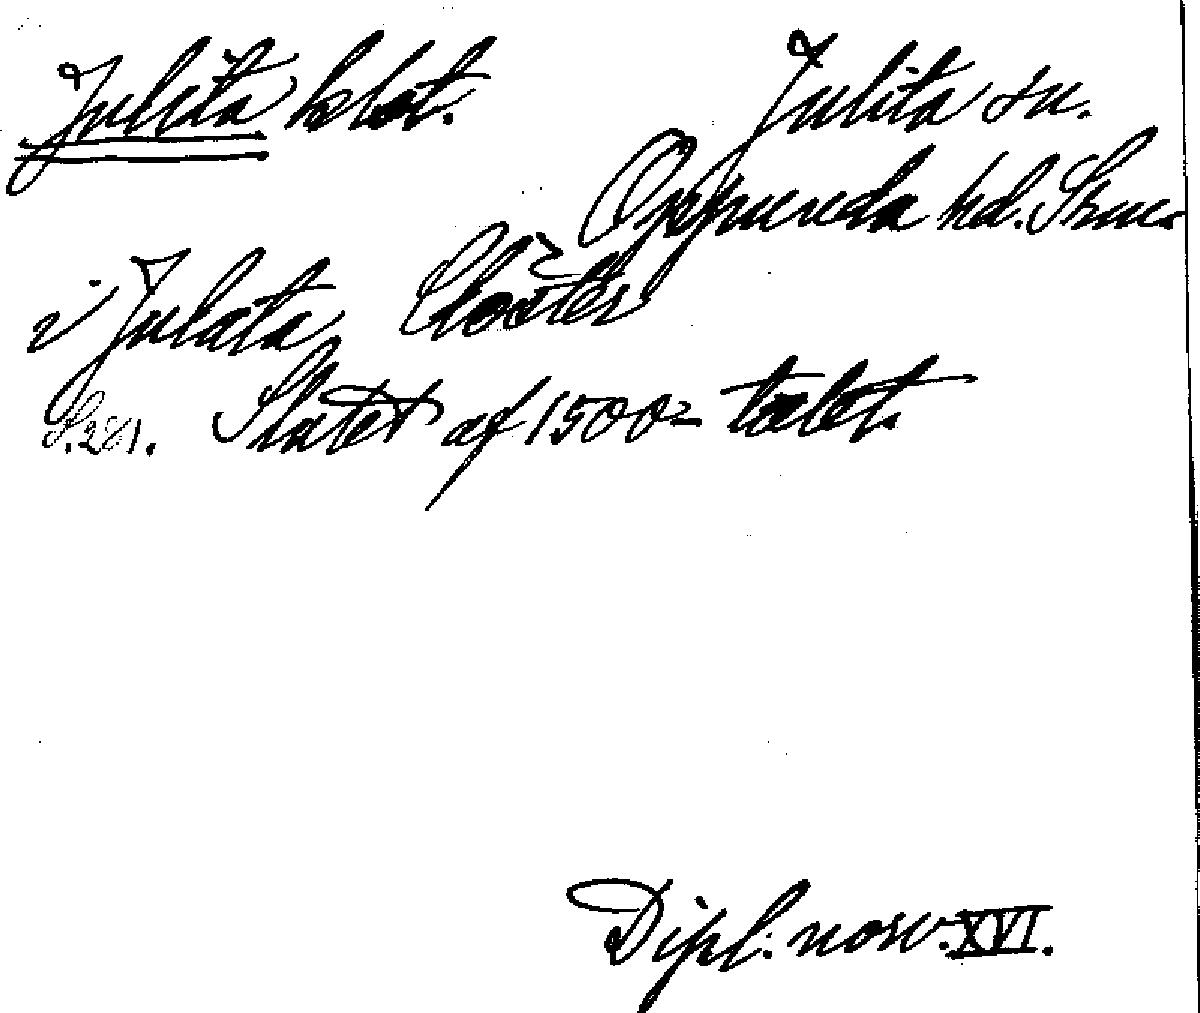 Julita klost. Julita sn.
Oppunda hd. Srml.
i Julata Closter
S. 281. Slutet af 1500-talet.
Dipl. norv. XVI.